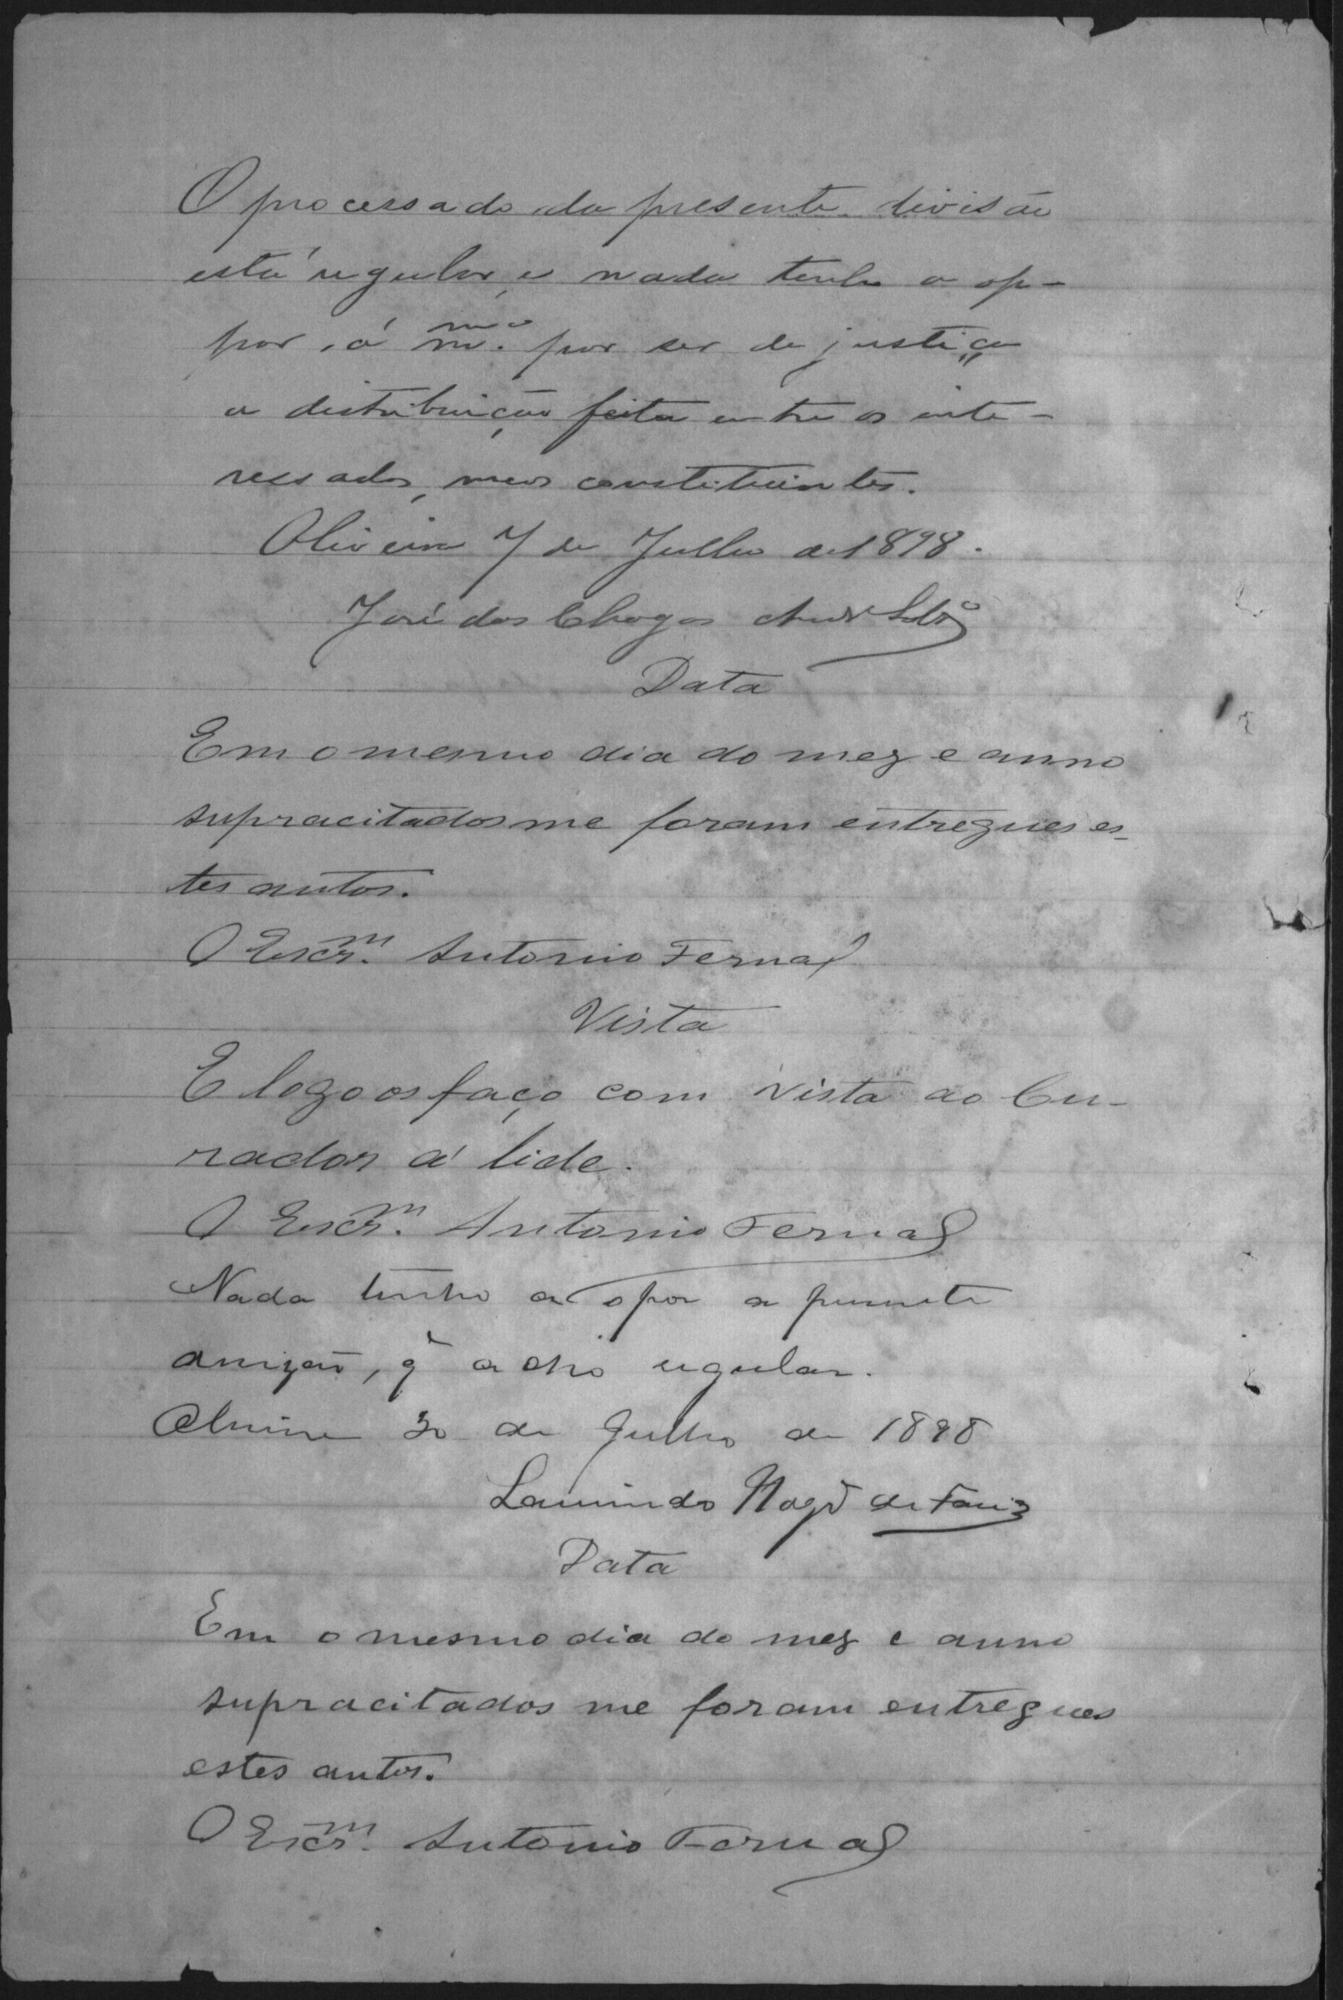 O processado da presente divisão
está regular, e nada tenho a op-
por, á m.mo por ser de justiça
a distribuição feita entre os inte-
ressados, meus constituintes.
Oliveira 7 de Julho de 1898.
José das Chagas
Data
Em o mesmo dia do mez e anno
supracitados me foram entregues es-
tes autos.
O Escr.m Antonio Fernal
Vista
E logo os faço com vista ao Cu-
rador á lide.
O Escr.m Antonio Fernal
Nada tenho a opor a presente
divizão, q̃ acho regular.
Oliveira 30 de Julho de 1898
Laurindo de Faria
Data
Em o mesmo dia do mez e anno
supracitados me foram entregues
estes autos.
O Escr.m Antonio Fernal